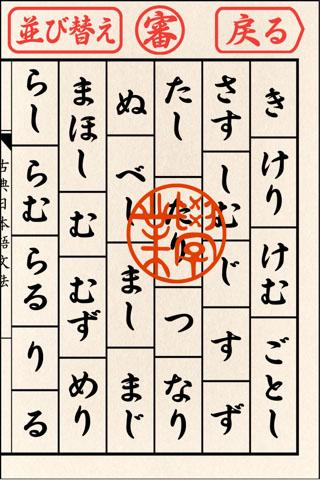 並び替え
審
戻る
き
けり
けむ
ごとし
さす
しむ
じ
す
ず
たし
たり
つ
なり
ぬ
べし
まし
まじ
まほし
む
むず
めり
らし
らむ
らる
り
る
古典日本語文法